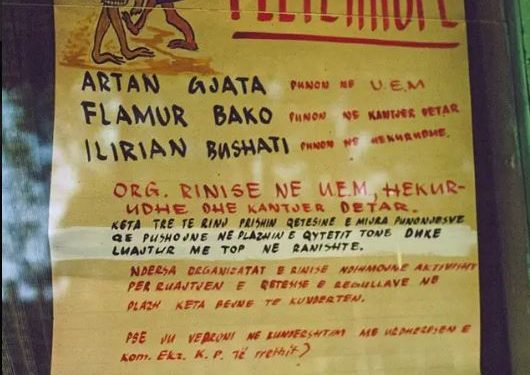 FLETERRUFE
ARTAN GJATA PUNON NE U.E.M
FLAMUR BAKO PUNON NE KANTJER DETAR
ILIRIAN BUSHATI PUNON NE HEKURUDHE.
ORG. RINISE NE U.E.M, HEKUR-
UDHE DHE KANTJER DETAR.
KETA TRE TE RINJ PRISHIN QETESINE E MIJRA PUNONJESVE
QE PUSHOJNE NE PLAZHIN E QYTETIT TONE DUKE
LUAJTUR ME TOP NE RANISHTE.
NDERSA ORGANIZATAT E RINISE NDIHMOJNE AKTIVISHT
PER RUAJTJEN E QETESISE E REGULLAVE NE
PLAZH KETA BEJNE TE KUNDERTEN.
PSE JU VEPRONI NE KUNDERSHTIM ME URDHERESEN E
Kom. EKZ. K. P. TË rrethit?